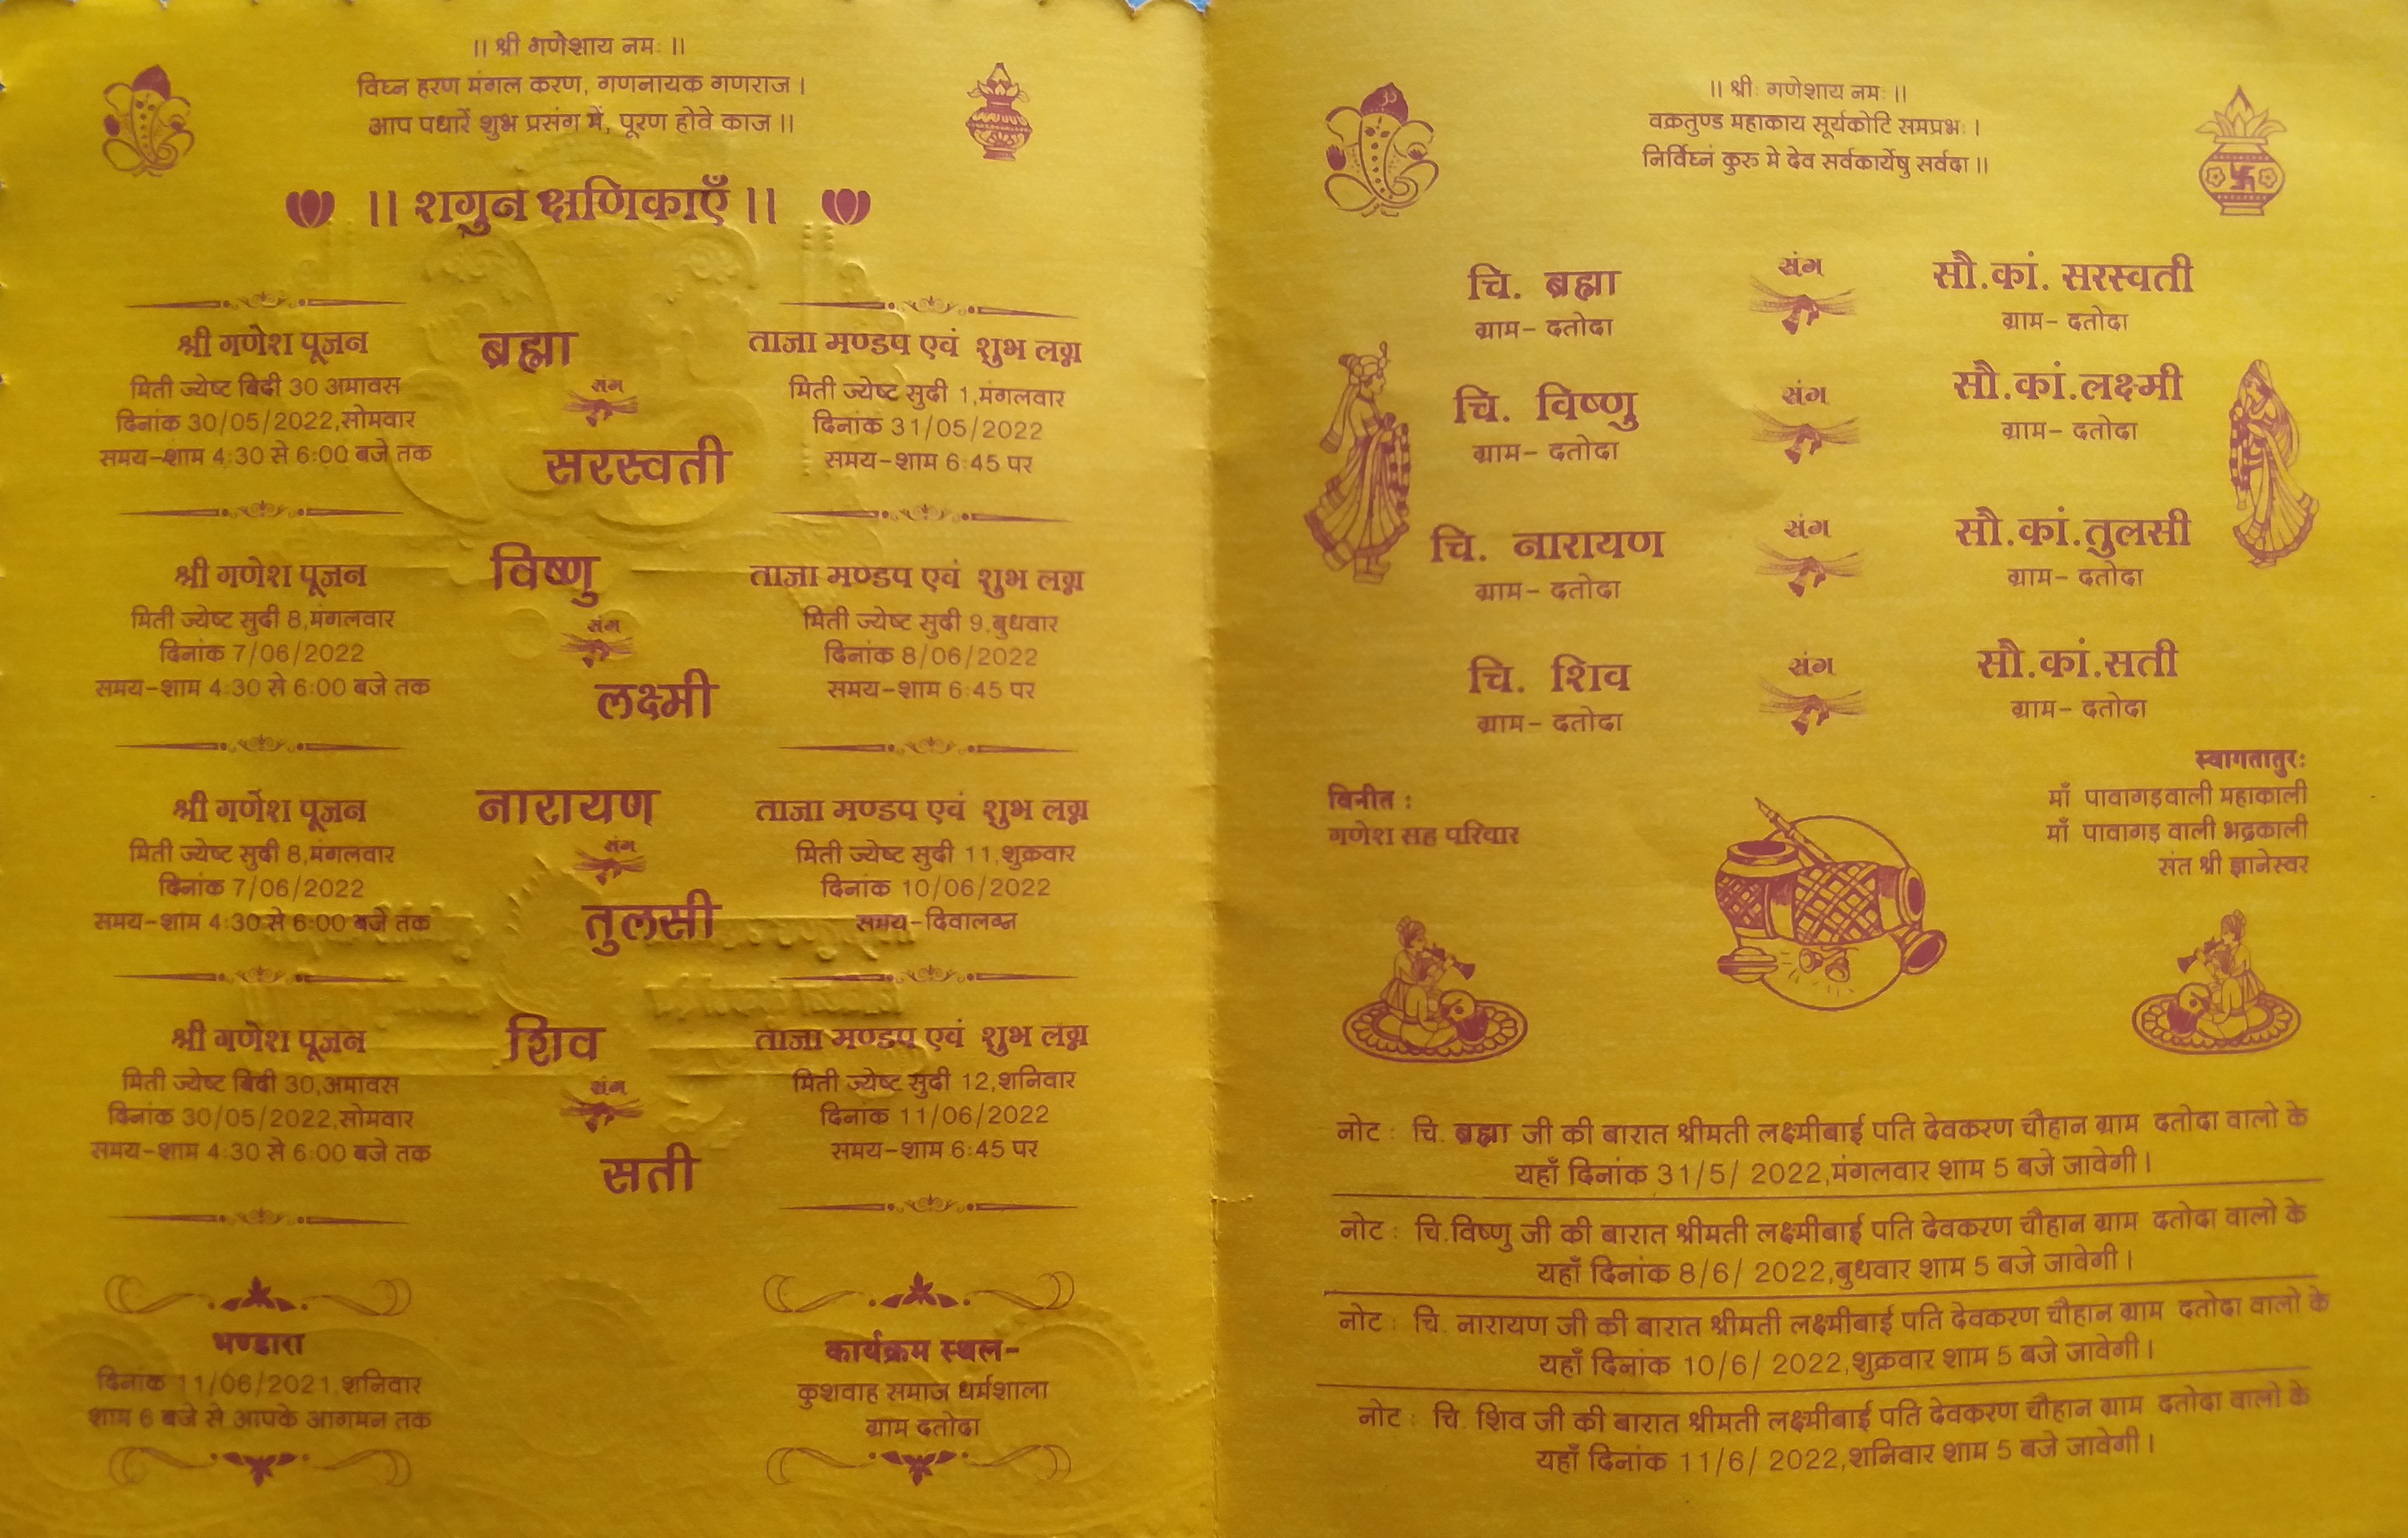 ।। श्री गणेशाय नमः ।।
विघ्न हरण मंगल करण, गणनायक गणराज ।
आप पधारें शुभ प्रसंग में, पूरण होवे काज ।।
।। शगुन क्षणिकाएँ ।।
श्री गणेश पूजन
मिती ज्येष्ट बिदी 30 अमावस
दिनांक 30/05/2022,सोमवार
समय-शाम 4:30 से 6:00 बजे तक
ब्रह्मा
संग
सरस्वती
ताजा मण्डप एवं शुभ लग्न
मिती ज्येष्ट सुदी 1,मंगलवार
दिनांक 31/05/2022
समय-शाम 6:45 पर
श्री गणेश पूजन
मिती ज्येष्ट सुदी 8,मंगलवार
दिनांक 7/06/2022
समय-शाम 4:30 से 6:00 बजे तक
विष्णु
संग
लक्ष्मी
ताजा मण्डप एवं शुभ लग्न
मिती ज्येष्ट सुदी 9,बुधवार
दिनांक 8/06/2022
समय-शाम 6:45 पर
श्री गणेश पूजन
मिती ज्येष्ट सुदी 8,मंगलवार
दिनांक 7/06/2022
समय-शाम 4:30 से 6:00 बजे तक
नारायण
संग
तुलसी
ताजा मण्डप एवं शुभ लग्न
मिती ज्येष्ट सुदी 11,शुक्रवार
दिनांक 10/06/2022
समय-दिवालग्न
श्री गणेश पूजन
मिती ज्येष्ट बिदी 30,अमावस
दिनांक 30/05/2022,सोमवार
समय-शाम 4:30 से 6:00 बजे तक
शिव
संग
सती
ताजा मण्डप एवं शुभ लग्न
मिती ज्येष्ट सुदी 12,शनिवार
दिनांक 11/06/2022
समय-शाम 6:45 पर
भण्डारा
दिनांक 11/06/2021,शनिवार
शाम 6 बजे से आपके आगमन तक
कार्यक्रम स्थल-
कुशवाह समाज धर्मशाला
ग्राम दतोदा
।। श्रीः गणेशाय नमः ।।
वक्रतुण्ड महाकाय सूर्यकोटि समप्रभः ।
निर्विघ्नं कुरु मे देव सर्वकार्येषु सर्वदा ।।
चि. ब्रह्मा संग सौ.कां. सरस्वती
ग्राम- दतोदा ग्राम- दतोदा
चि. विष्णु संग सौ.कां.लक्ष्मी
ग्राम- दतोदा ग्राम- दतोदा
चि. नारायण संग सौ.कां.तुलसी
ग्राम- दतोदा ग्राम- दतोदा
चि. शिव संग सौ.कां.सती
ग्राम- दतोदा ग्राम- दतोदा
विनीत :
गणेश सह परिवार
स्वागतातुर:
माँ पावागड़वाली महाकाली
माँ पावागड़ वाली भद्रकाली
संत श्री ज्ञानेस्वर
नोट : चि. ब्रह्मा जी की बारात श्रीमती लक्ष्मीबाई पति देवकरण चौहान ग्राम दतोदा वालो के
यहाँ दिनांक 31/5/ 2022,मंगलवार शाम 5 बजे जावेगी ।
नोट : चि.विष्णु जी की बारात श्रीमती लक्ष्मीबाई पति देवकरण चौहान ग्राम दतोदा वालो के
यहाँ दिनांक 8/6/ 2022,बुधवार शाम 5 बजे जावेगी ।
नोट : चि. नारायण जी की बारात श्रीमती लक्ष्मीबाई पति देवकरण चौहान ग्राम दतोदा वालो के
यहाँ दिनांक 10/6/ 2022,शुक्रवार शाम 5 बजे जावेगी ।
नोट : चि. शिव जी की बारात श्रीमती लक्ष्मीबाई पति देवकरण चौहान ग्राम दतोदा वालो के
यहाँ दिनांक 11/6/ 2022,शनिवार शाम 5 बजे जावेगी ।